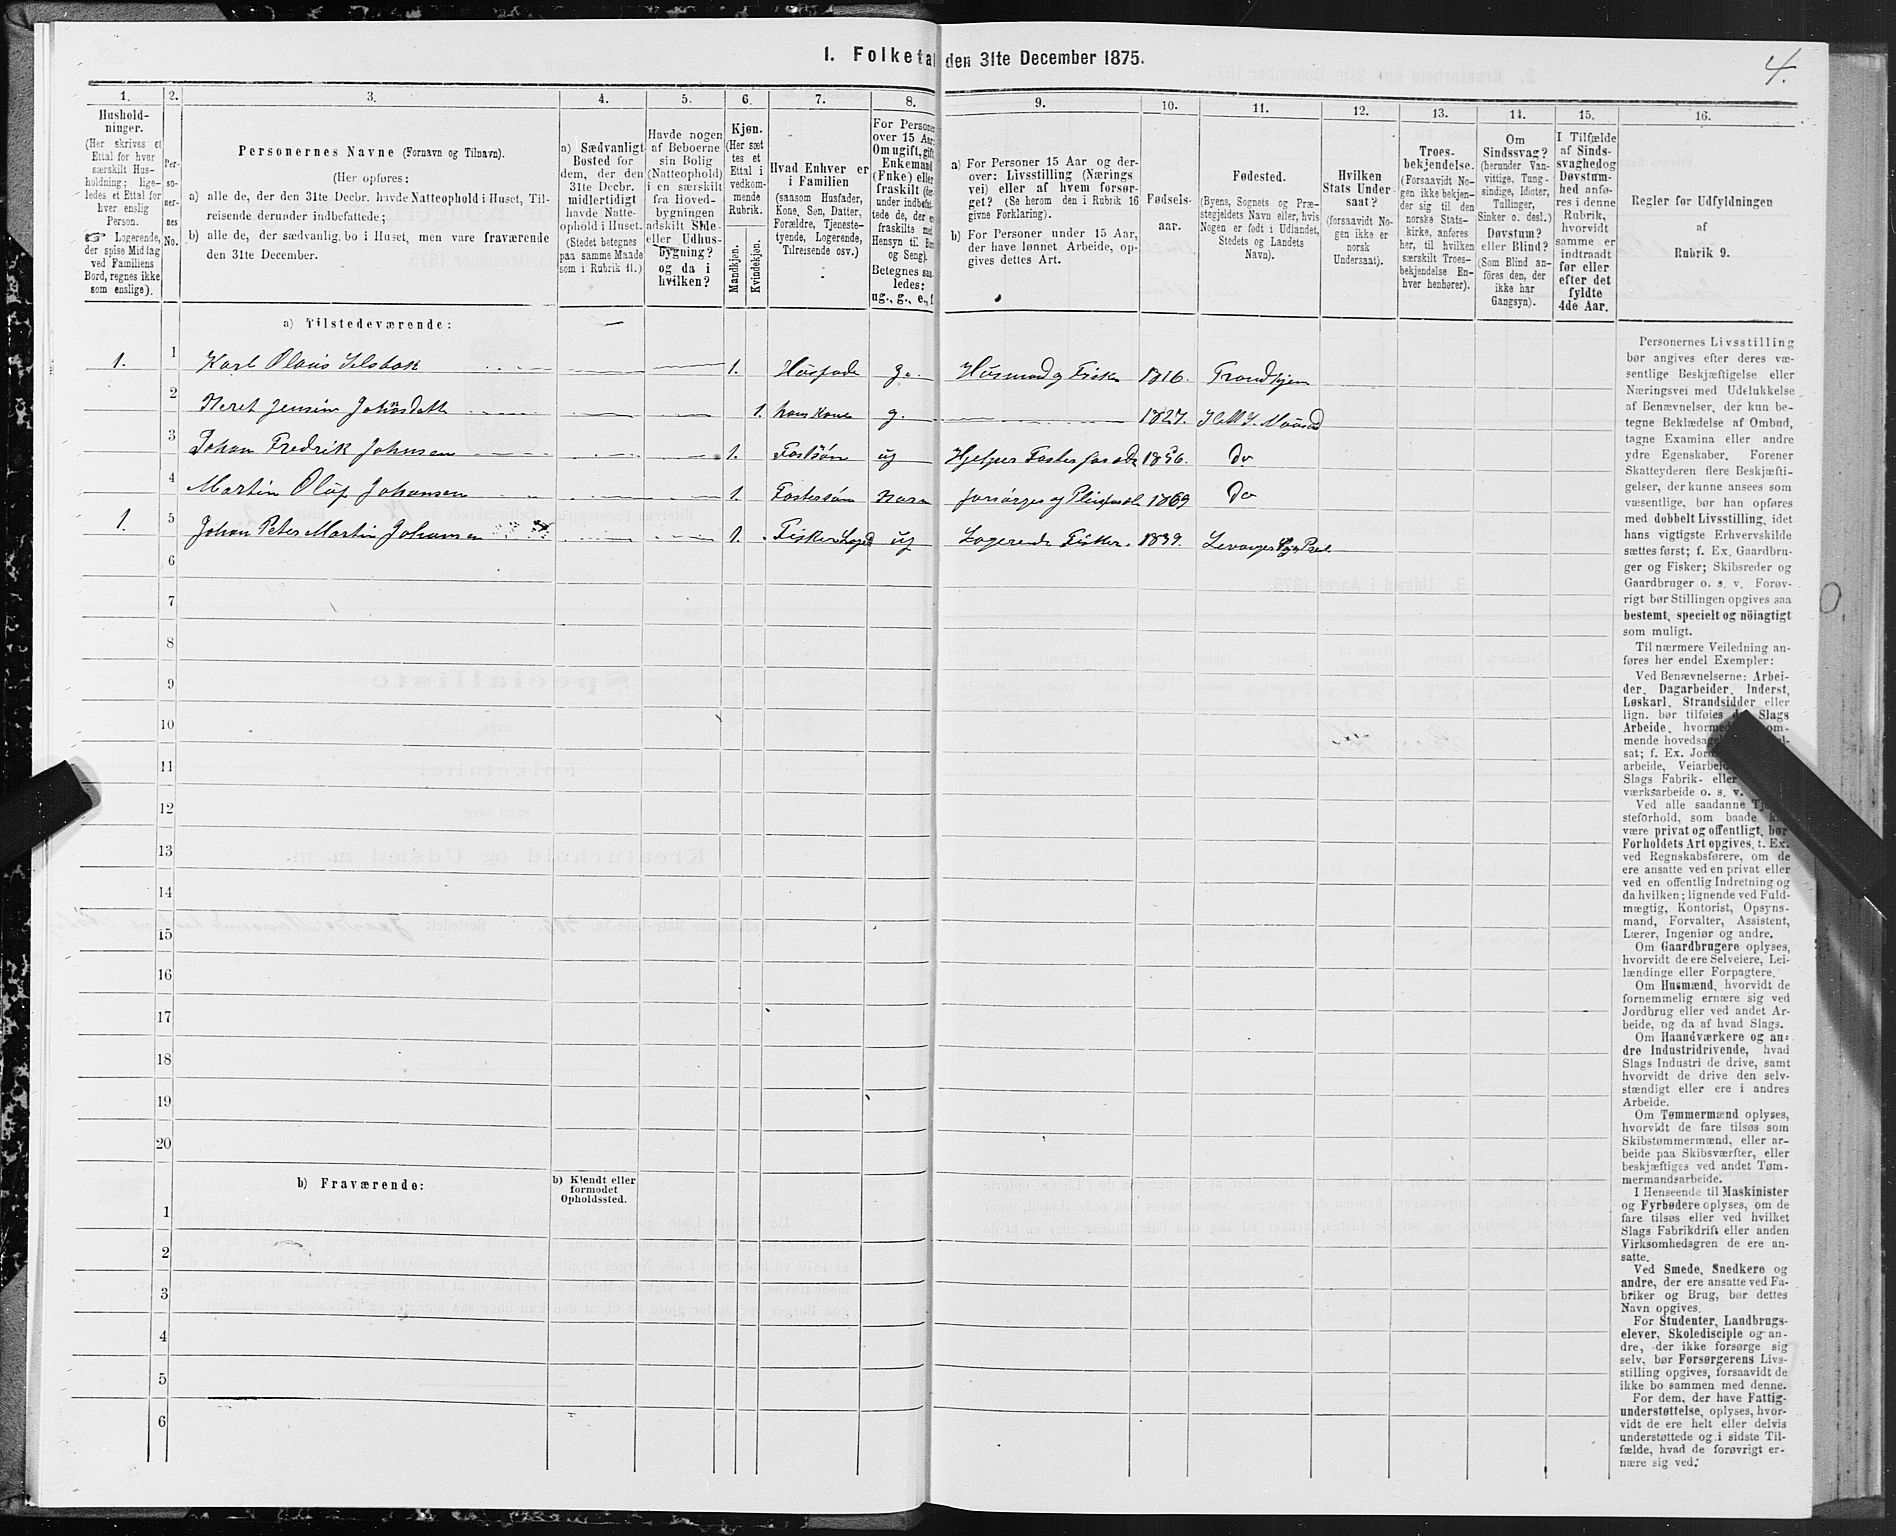 1. Folketal den 31te December 1875.
4.
1.
Hushold-
ninger.
(Her skrives et
Ettal for hver
særskilt Hus-
holdning; lige-
ledes et Ettal for
hver enslig
Person.
☞ Logerende,
der spise Middag
ved Familiens
Bord, regnes ikke
som enslige).
2.
Per-
so-
ner-
nes
No.
3.
Personernes Navne (Fornavn og Tilnavn).
(Her opføres:
a) alle de, der den 31te Decbr. havde Natteophold i Huset, Til-
reisende derunder indbefattede;
b) alle de, der sædvanlig bo i Huset, men vare fraværende
den 31te December.
4.
a) Sædvanligt
Bosted for
dem, der den
31te Decbr.
midlertidigt
havde Natte-
ophold i Huset.
(Stedet betegnes
paa samme Maade
som i Rubrik 11.)
5.
Havde nogen
af Beboerne
sin Bolig
(Natteophold)
i en særskilt
fra Hoved-
bygningen
adskilt Side-
eller Udhus-
bygning?
og da i
hvilken?
6.
Kjøn.
(Her sæt
tes et
Ettal i
vedkom-
mende
Rubrik.
Mandkjøn.
Kvindekjøn.
7.
Hvad Enhver er
i Familien
(saasom Husfader,
Kone, Søn, Datter,
Forældre, Tjeneste-
tyende, Logerende,
Tilreisende osv.)
8.
For Persone
over 15 Aar
Om ugift, gift
Enkemand
(Enke) eller
fraskilt (der-
under indbefat-
tede de, der er
fraskilte med
Hensyn til Bo
og Seng).
Betegnes saa
ledes:
ug., g., e., f
9.
a) For Personer 15 Aar og der-
over: Livsstilling (Nærings
vei) eller af hvem forsør-
get? (Se herom den i Rubrik 16
givne Forklaring).
b) For Personer under 15 Aar,
der have lønnet Arbeide, op-
gives dettes Art.
10.
Fødsels-
aar.
11.
Fødested.
(Byens, Sognets og Præ-
stegjeldets Navn eller, hvis
Nogen er født i Udlandet,
Stedets og Landets
Navn).
12.
Hvilken
Stats Under-
saat?
(forsaavidt No-
gen ikke er
norsk
Undersaat).
13.
Troes-
bekjendelse.
(Forsaavidt No-
gen ikke bekjen-
der sig til den
norske Stats-
kirke, anføres
her, til hvilken
særskilt Troes-
bekjendelse En-
hver henhører).
14.
Om
Sindssvag?
(herunder Van-
vittige, Tung-
sindige, Idioter,
Tullinger,
Sinker o. desl.)
Døvstum?
eller Blind?
(Som Blind an-
føres den, der
ikke har
Gangsyn).
15.
I Tilfælde
af Sinds-
svaghed og
Døvstum-
hed anfø-
res i denne
Rubrik,
hvorvidt
samme er
indtraadt
før eller
efter det
fyldte
4de Aar.
16.
Regler for Udfyldningen
af
Rubrik 9.
a) Tilstedeværende:
1. 1 Karl Olaus 1. Husfade g. Husmand og Fisker 1816. Trondhjem
2 Beret Jensine Johnsdatt 1. hans Kone g. 1827.
3 Johan Fredrik Johnsen 1. Fostsøn ug Hjelper 1856. do
4 Martin Oluf Johansen 1. Fostersøn Barn forsørges 1869 do
1. 5 Johan Peter Martin Johansen 1. Fisker Loged ug Logerende Fisker. 1839.
6
7
8
9
10
11
12
13
14
15
16
17
18
19
20
b) Fraværende:
b) Kjendt eller
formodet
Opholdssted.
1
2
3
4
5
6
Personernes Livsstilling
bør angives efter deres væ-
sentlige Beskjæftigelse eller
Næringsvei med Udelukkelse
af Benævnelser, der kun be-
tegne Beklædelse af Ombud,
tagne Examina eller andre
ydre Egenskaber. Forener
Skatteyderen flere Beskjæfti-
gelser, der kunne ansees som
væsentlige, bør han opføres
med dobbelt Livsstilling, idet
hans vigtigste Erhvervskilde
sættes først; f. Ex. Gaardbru-
ger og Fisker; Skibsreder og
Gaardbruger o. s. v. Forøv-
rigt bør Stillingen opgives saa
bestemt, specielt og nöiagtigt
som muligt.
Til nærmere Veiledning an-
føres her endel Exempler:
Ved Benævnelserne: Arbei-
der, Dagarbeider, Inderst,
Løskarl, Strandsidder eller
lign. bør tilføies Slags
Arbeide,
mende
sat; f. Ex.
arbeide,
Slags Fabrik- eller
værksarbeide o. s. v.
Ved alle saadanne
steforhold, som baade
være privat og offentligt, bør
Forholdets Art opgives, f. Ex.
ved Regnskabsførere, om de
ere ansatte ved en privat eller
ved en offentlig Indretning og
da hvilken; lignende ved Fuld-
mægtig, Kontorist, Opsyns-
mand, Forvalter, Assistent,
Lærer, Ingeniør og andre.
Om Gaardbrugere oplyses,
hvorvidt de ere Selveiere, Lei-
lændinge eller Forpagtere.
Om Husmænd, hvorvidt de
fornemmelig ernære sig ved
Jordbrug eller ved andet Ar-
beide, og da af hvad Slags.
Om Haandværkere og an-
dre Industridrivende, hvad
Slags Industri de drive, samt
hvorvidt de drive den selv-
stændigt eller ere i andres
Arbeide.
Om Tømmermænd oplyses,
hvorvidt de fare tilsøs som
Skibstømmermænd, eller ar-
beide paa Skibsværfter, eller
beskjæftiges ved andet Tøm-
mermandsarbeide.
I Henseende til Maskinister
og Fyrbødere oplyses, om de
fare tilsøs eller ved hvilket
Slags Fabrikdrift eller anden
Virksomhedsgren de ere an-
satte.
Ved Smede, Snedkere og
andre, der ere ansatte ved Fa-
briker og Brug, bør dettes
Navn opgives.
For Studenter, Landbrugs-
elever, Skoledisciple og an-
dre, der ikke forsørge sig
selv, bør Forsørgerens Livs-
stilling opgives, forsaavidt de
ikke bo sammen med denne.
For dem, der have Fattig-
understøttelse, oplyses, hvor-
vidt de ere helt eller delvis
understøttede og i sidste Til-
fælde, hvad de forøvrigt er-
nære sig ved.